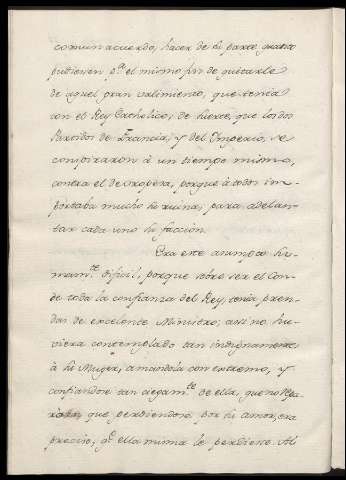 comun acuerdo, hacer de su parte quanto
pudiesen p.ª el mismo fin de quitarle
de aquel gran valimiento, que tenia
con el Rey Catholico; de suerte, que los dos
Partidos de Francia, y del Imperio, se
conspiraron à un tiempo mismo,
contra el de Oropesa, porque à todos im-
portaba mucho su ruina, para adelan-
tar cada uno su faccion.
Era este asumpto su-
mam.te dificil, porque sobre ser el Con-
de toda la confianza del Rey, tenia pren-
das de excelente Ministro; assi no hu-
viera contemplado tan indignamente
à su Muger, amandola con extremo, y
confiandose tan ciegam.te de ella, que no
que perdiendose por su amor, era
preciso, q.e ella misma le perdiese. Al